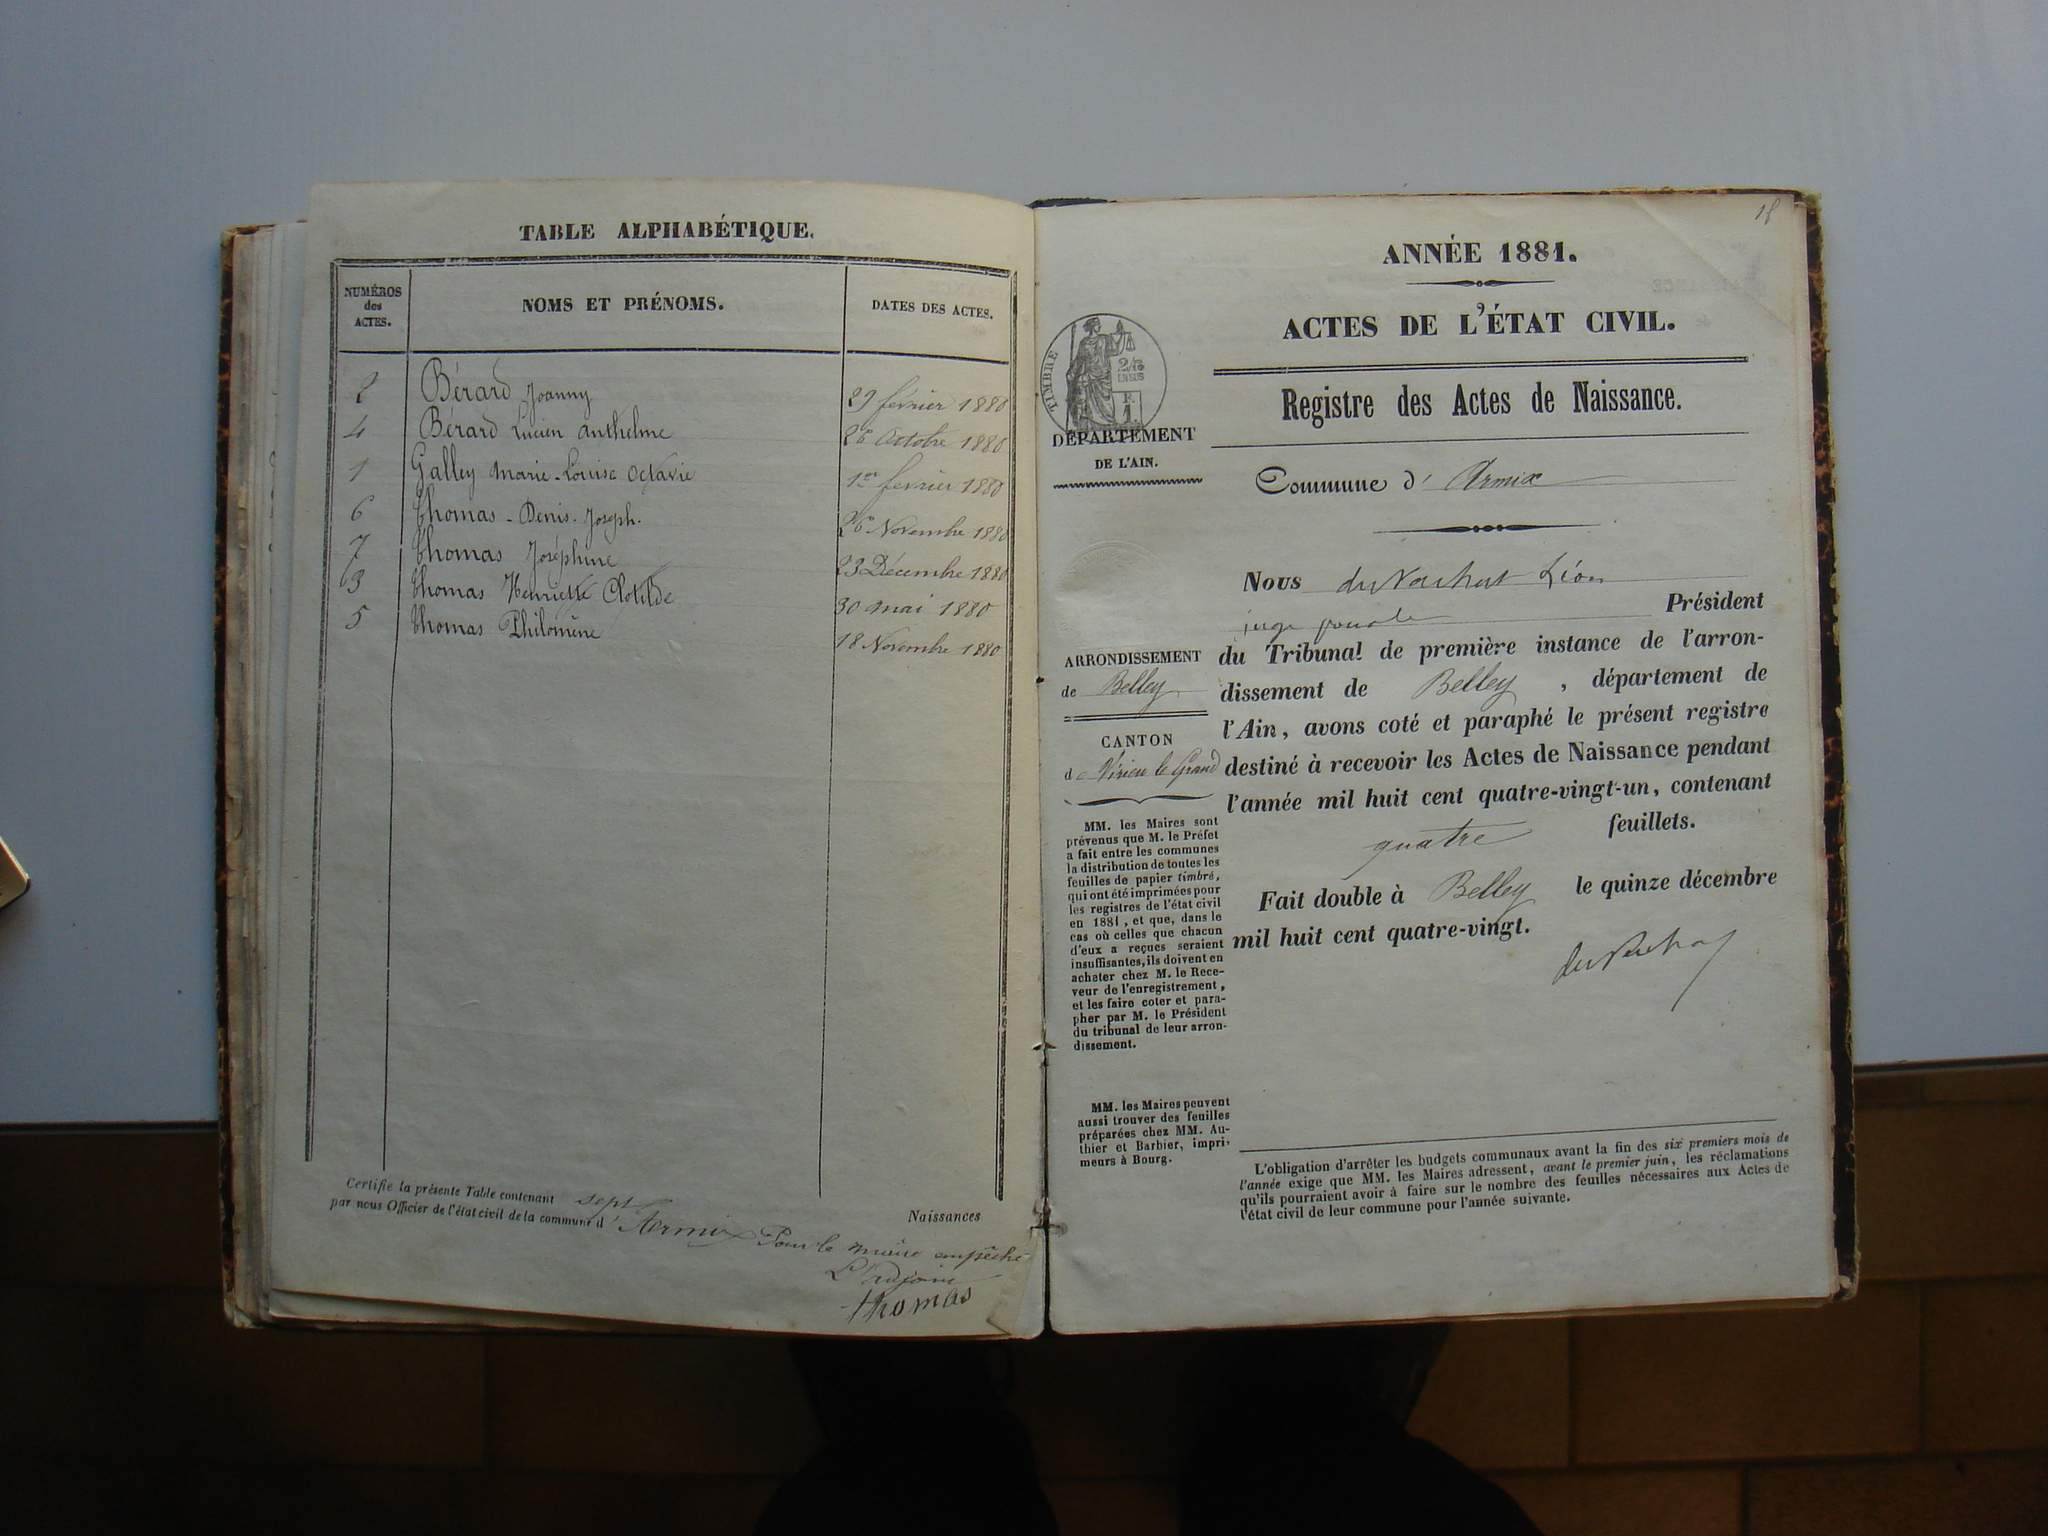 TABLE ALPHABÉTIQUE.
NUMÉROS
des
ACTES.
NOMS ET PRÉNOMS.
DATES DES ACTES.
2 Bérard Joanny 29 février 1880
4 Bérard Lucien Anthelme 26 Octobre 1880
1 Galley Marie-Louise Octavie 1er février 1880
6 Thomas-Denis-Joseph. 26 Novembre 1880
7 Thomas Joséphine 23 Décembre 1880
3 Thomas Henriette Clotilde 30 mai 1880
5 Thomas Philomène 18 Novembre 1880
Certifie la présente Table contenant sept Naissances
par nous Officier de l'état civil de la commune d' Armix Pour le maire empêché
L'adjoint
Thomas
18
ANNÉE 1881.
ACTES DE L'ÉTAT CIVIL.
Registre des Actes de Naissance.
TIMBRE
DÉPARTEMENT
DE L'AIN.
Commune d' Armix
Nous Léon
juge Président
du Tribunal de première instance de l'arron-
dissement de Belley, département de
l'Ain, avons coté et paraphé le présent registre
destiné à recevoir les Actes de Naissance pendant
l'année mil huit cent quatre-vingt-un, contenant
quatre feuillets.
Fait double à Belley le quinze décembre
mil huit cent quatre-vingt.
ARRONDISSEMENT
de Belley
CANTON
de Virieu le Grand
MM. les Maires sont
prévenus que M. le Préfet
a fait entre les communes
la distribution de toutes les
feuilles de papier timbré,
qui ont été imprimées pour
les registres de l'état civil
en 1881, et que, dans le
cas où celles que chacun
d'eux a reçues seraient
insuffisantes, ils doivent en
acheter chez M. le Rece-
veur de l'enregistrement,
et les faire coter et para-
pher par M. le Président
du tribunal de leur arron-
dissement.
MM. les Maires peuvent
aussi trouver des feuilles
préparées chez MM. Au-
thier et Barbier, impri-
meurs à Bourg.
L'obligation d'arrêter les budgets communaux avant la fin des six premiers mois de
l'année exige que MM. les Maires adressent, avant le premier juin, les réclamations
qu'ils pourraient avoir à faire sur le nombre des feuilles nécessaires aux Actes de
l'état civil de leur commune pour l'année suivante.